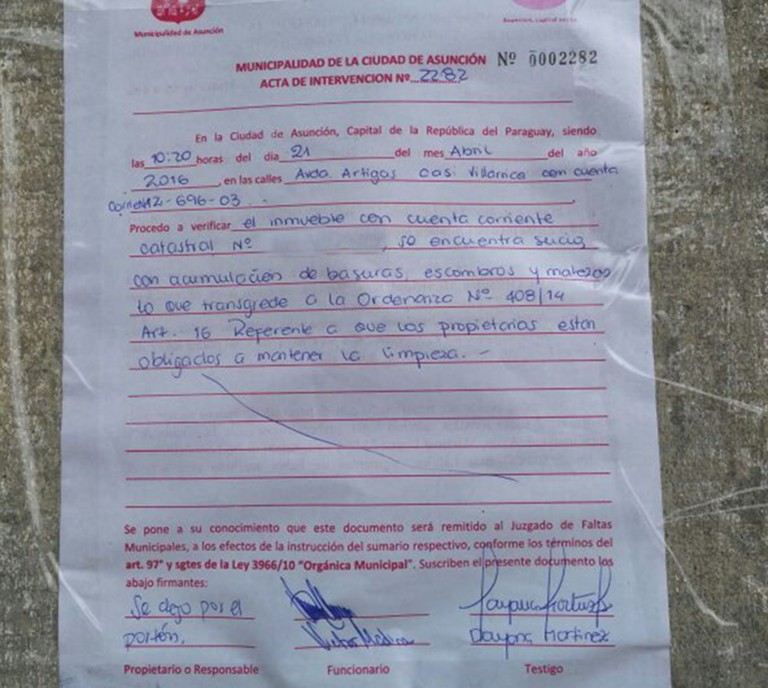 Municipalidad de Asunción
MUNICIPALIDAD DE LA CIUDAD DE ASUNCIÓN Nº 0002282
ACTA DE INTERVENCION Nº 2282
En la Ciudad de Asunción, Capital de la República del Paraguay, siendo
las 10:20 horas del dia 21 del mes Abril del año
2016, en las calles Avda. Artigas casi Villarrica con cuenta
12-696-03.
Procedo a verificar el inmueble con cuenta corriente
catastral Nº , se encuentra sucio,
con acumulación de basuras, escombros y malezas
lo que transgrede a la Ordenanza Nº 408/14
Art. 16 Referente a que los propietarios estan
obligados a mantener la limpieza. -
Se pone a su conocimiento que este documento será remitido al Juzgado de Faltas
Municipales, a los efectos de la instrucción del sumario respectivo, conforme los términos del
art. 97° y sgtes de la Ley 3966/10 "Orgánica Municipal". Suscriben el presente documento los
abajo firmantes:
Se dejo por el
portón.
Victor Medina
Dayana Martinez
Propietario o Responsable Funcionario Testigo